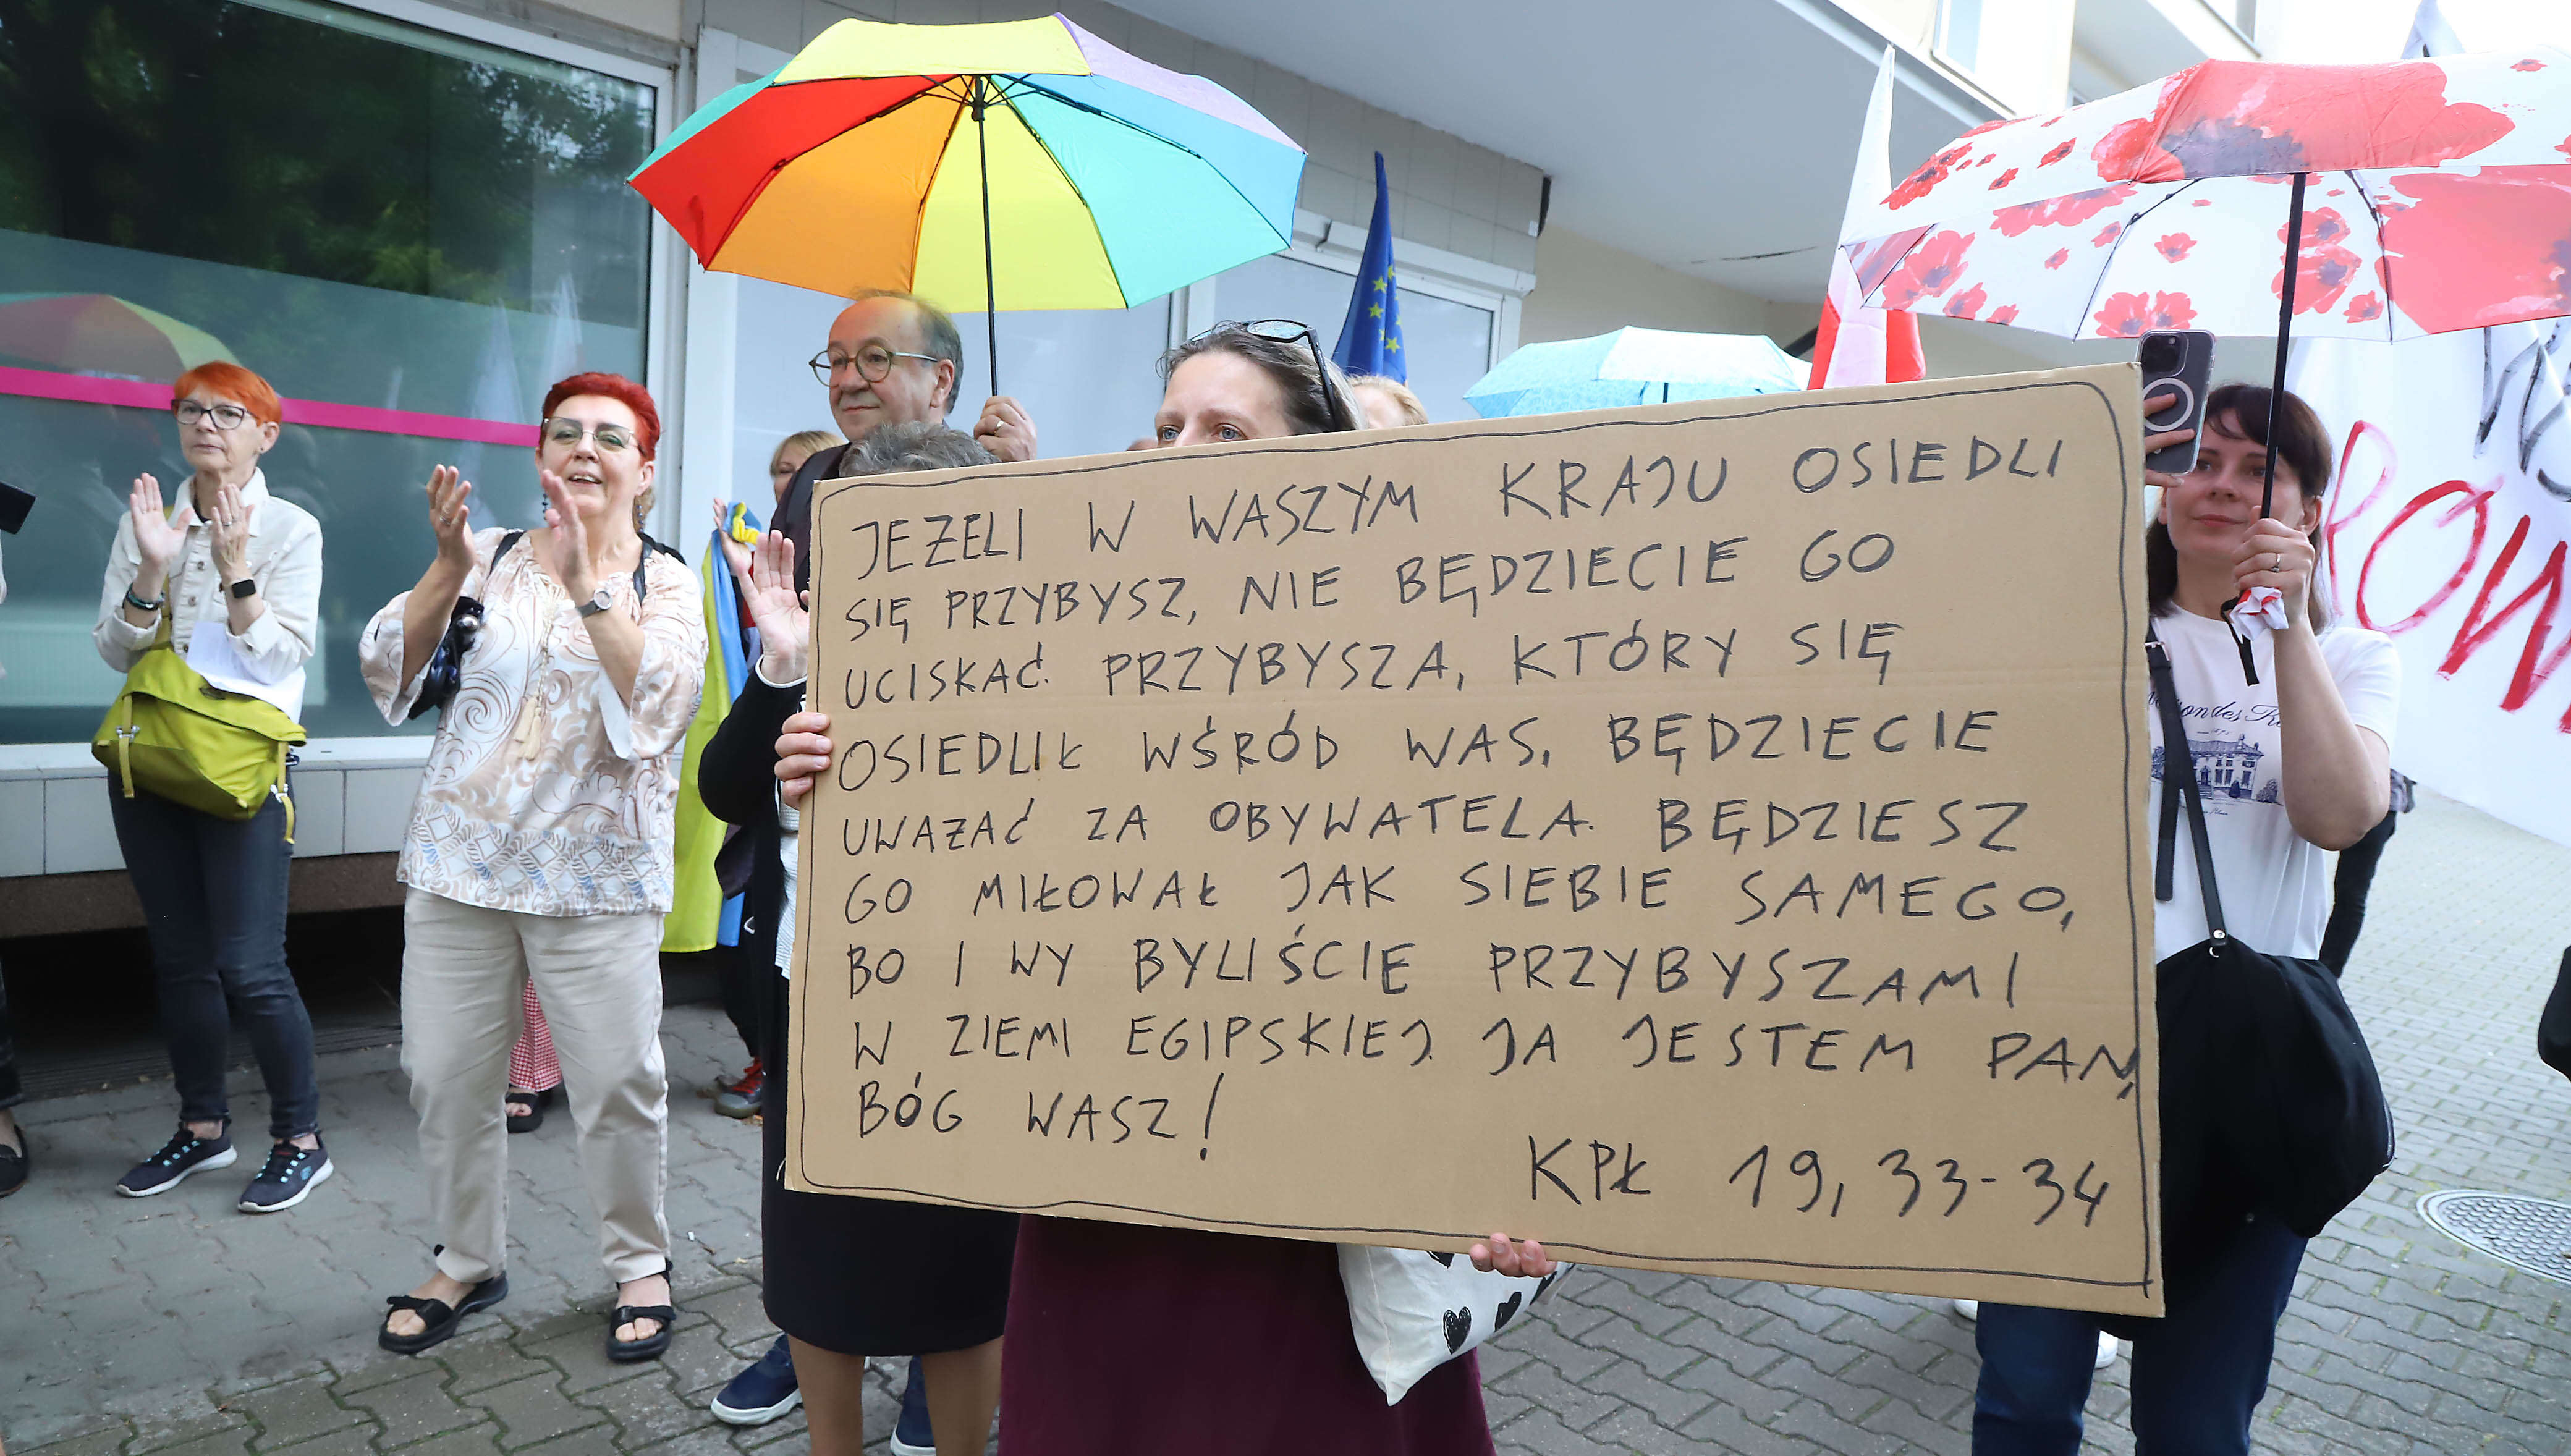 JEŻELI W WASZYM KRAJU OSIEDLI
SIĘ PRZYBYSZ, NIE BĘDZIECIE GO
UCISKAĆ. PRZYBYSZA, KTÓRY SIĘ
OSIEDLIŁ WŚRÓD WAS, BĘDZIECIE
UWAŻAĆ ZA OBYWATELA. BĘDZIESZ
GO MIŁOWAŁ JAK SIEBIE SAMEGO,
BO I WY BYLIŚCIE PRZYBYSZAMI
W ZIEMI EGIPSKIEJ. JA JESTEM PAN,
BÓG WASZ!
KPŁ 19, 33-34